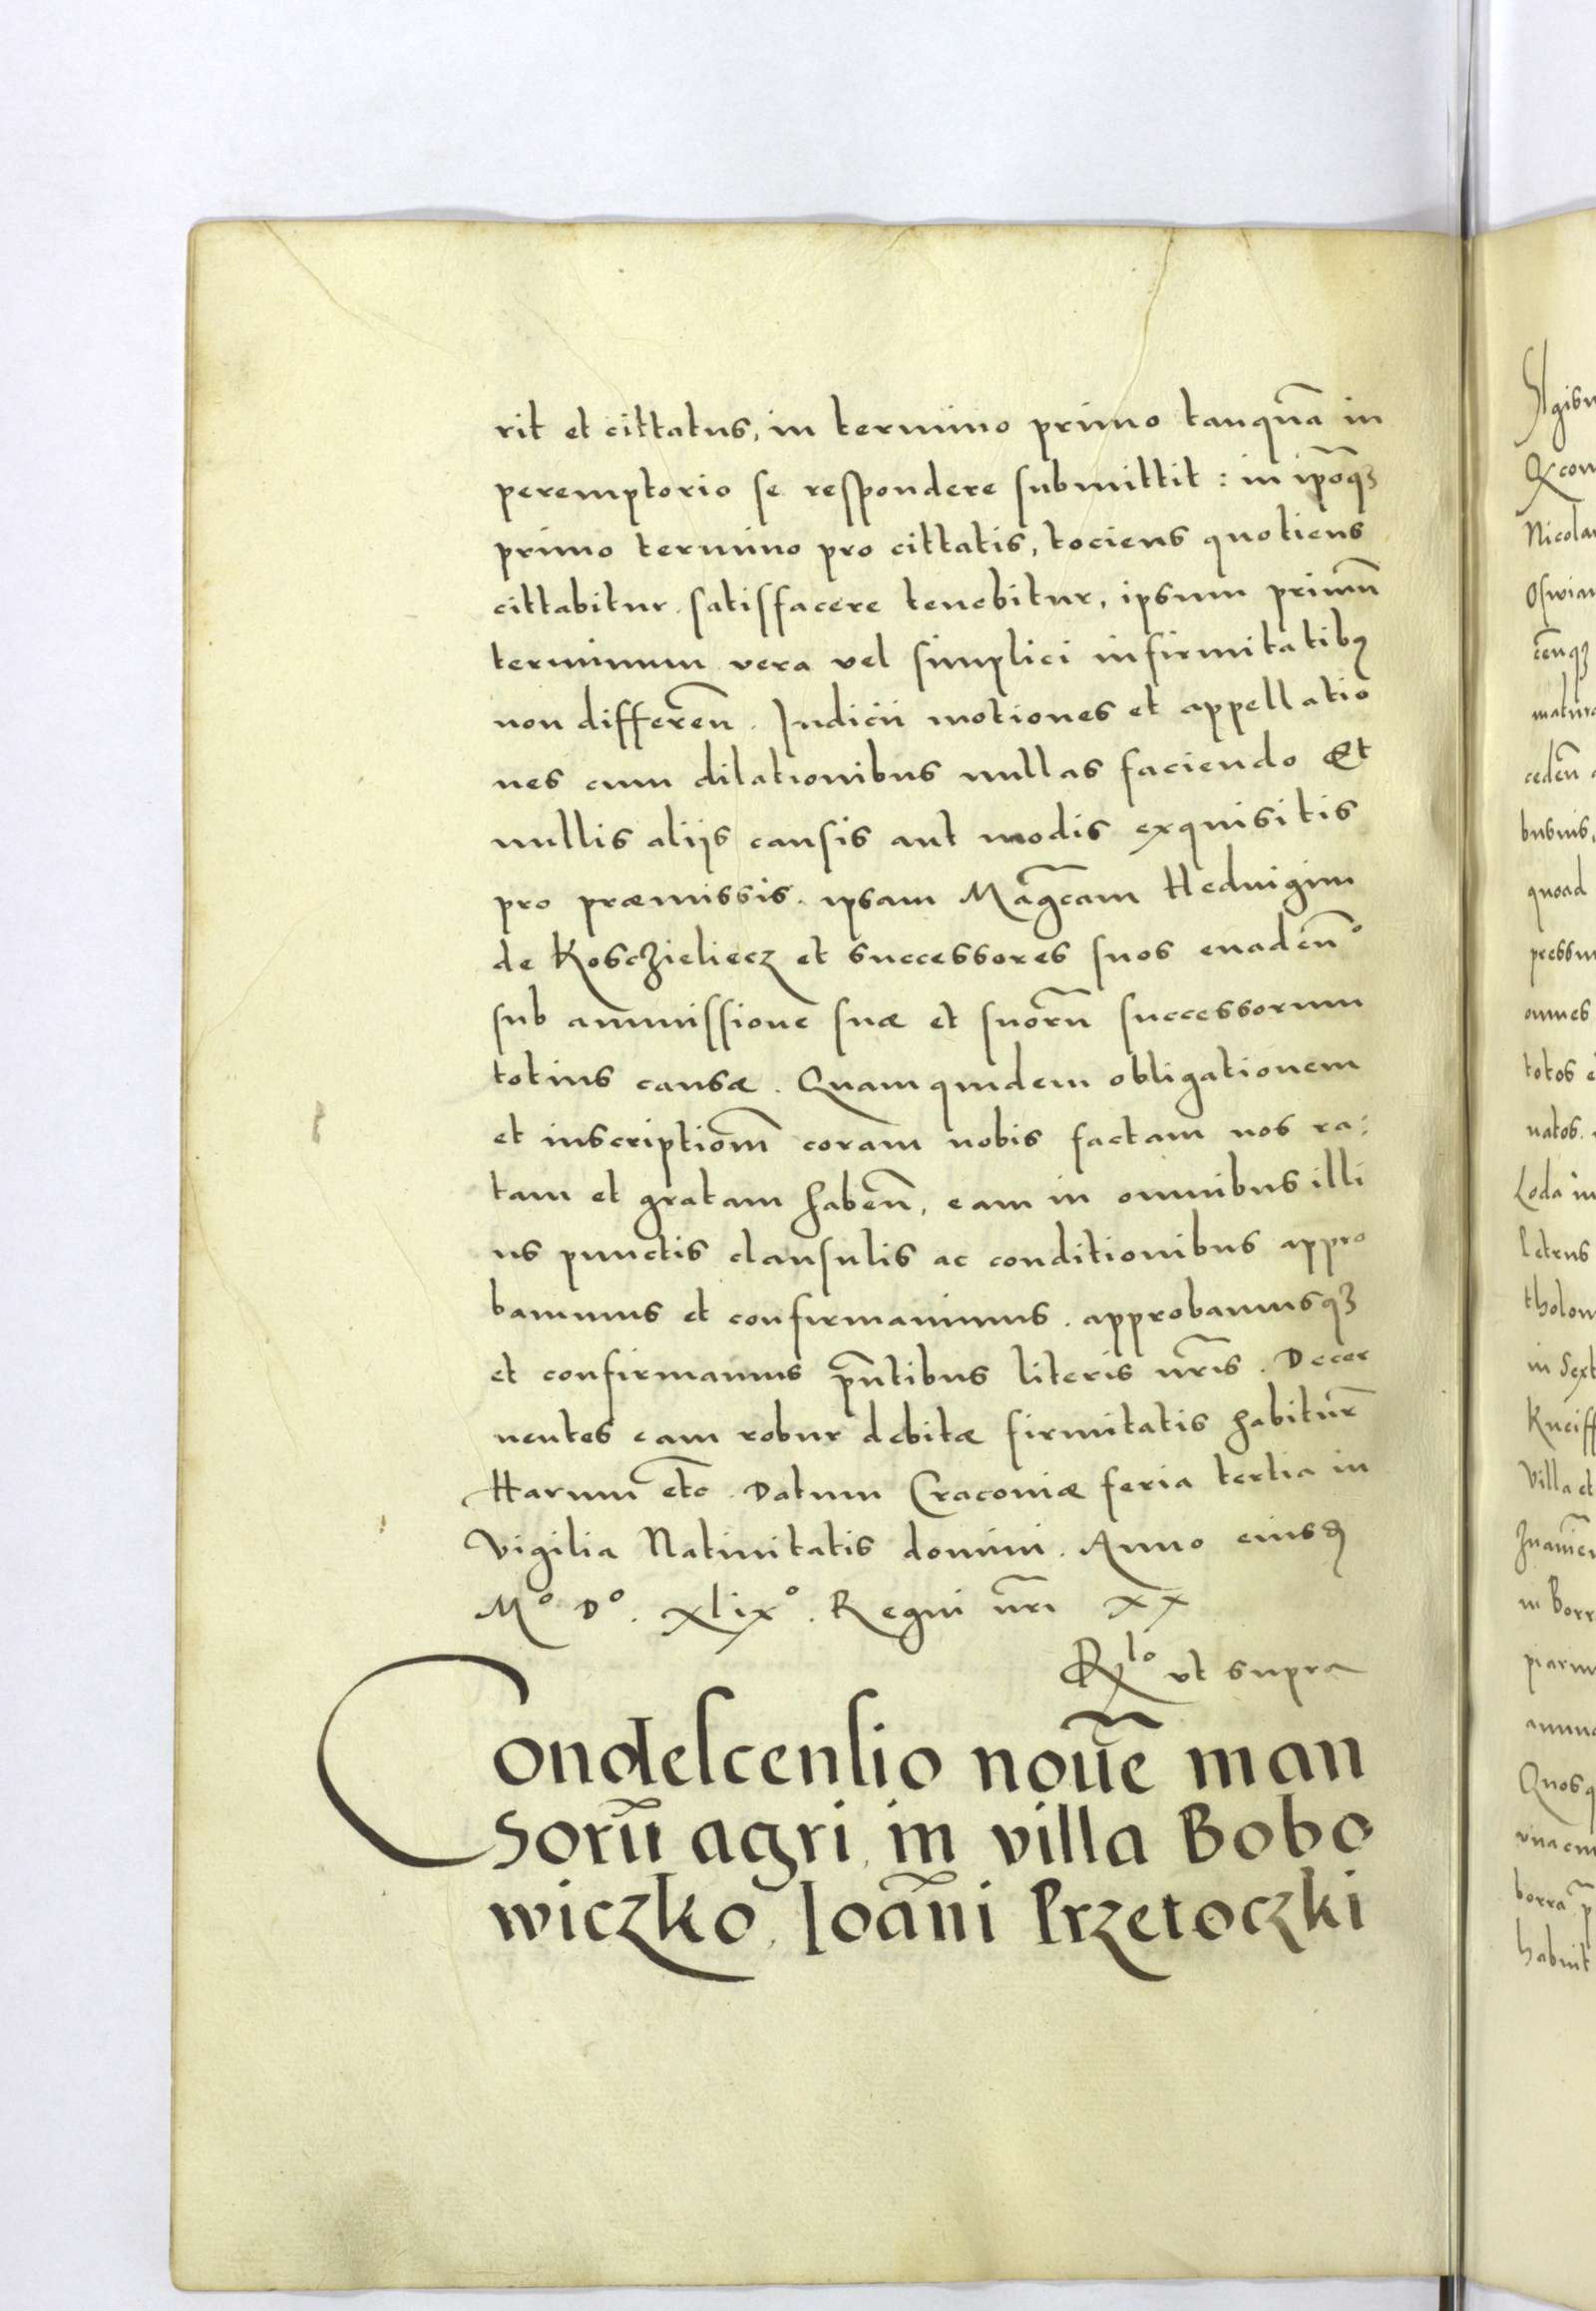 rit et cittatus, in termino primo tanquā in
peremptorio se respondere submittit : in ip̄oqȝ
primo termino pro cittatis, tociens quotiens
cittabitur. satisfacere tenebitur, ipsum primū
terminum vera vel simplici infirmitatibꝰ
non differeñ. Iudicii motiones et appellatio
nes cum dilationibus nullas faciendo Et
nullis aliis causis aut modis exquisitis
pro præmissis. ipsam Magc̄am Heduigim
de Kosczieliecz et successores suos euadeñ
sub ammissione suæ et suorū successorum
totius causæ. Quamquidem obligationem
et inscriptiom̄ coram nobis factam nos ra:
tam et gratam habeñ, eam in omnibus illi
us punctis clausulis ac conditionibus appro
bamus et confirmauimus. approbamusqȝ
et confirmamus pn̄tibus literis nr̄is. Decer
nentes eam robur debitæ firmitatis habitur̄
Harum etc̄. Datum Cracouiæ feria tertia in
vigilia Natiuitatis domini. Anno eiusdꝫ
Mº Dº. xlixº. Regni nr̄i xx
Rlº vt supra
Condescensio nouē man
sorū agri in villa Bobo
wiczko, Ioāni Przetoczki
Nicola
quoad
omnes
totos
natos.
Loda in
Petrus
villa et
Quos q
habuit